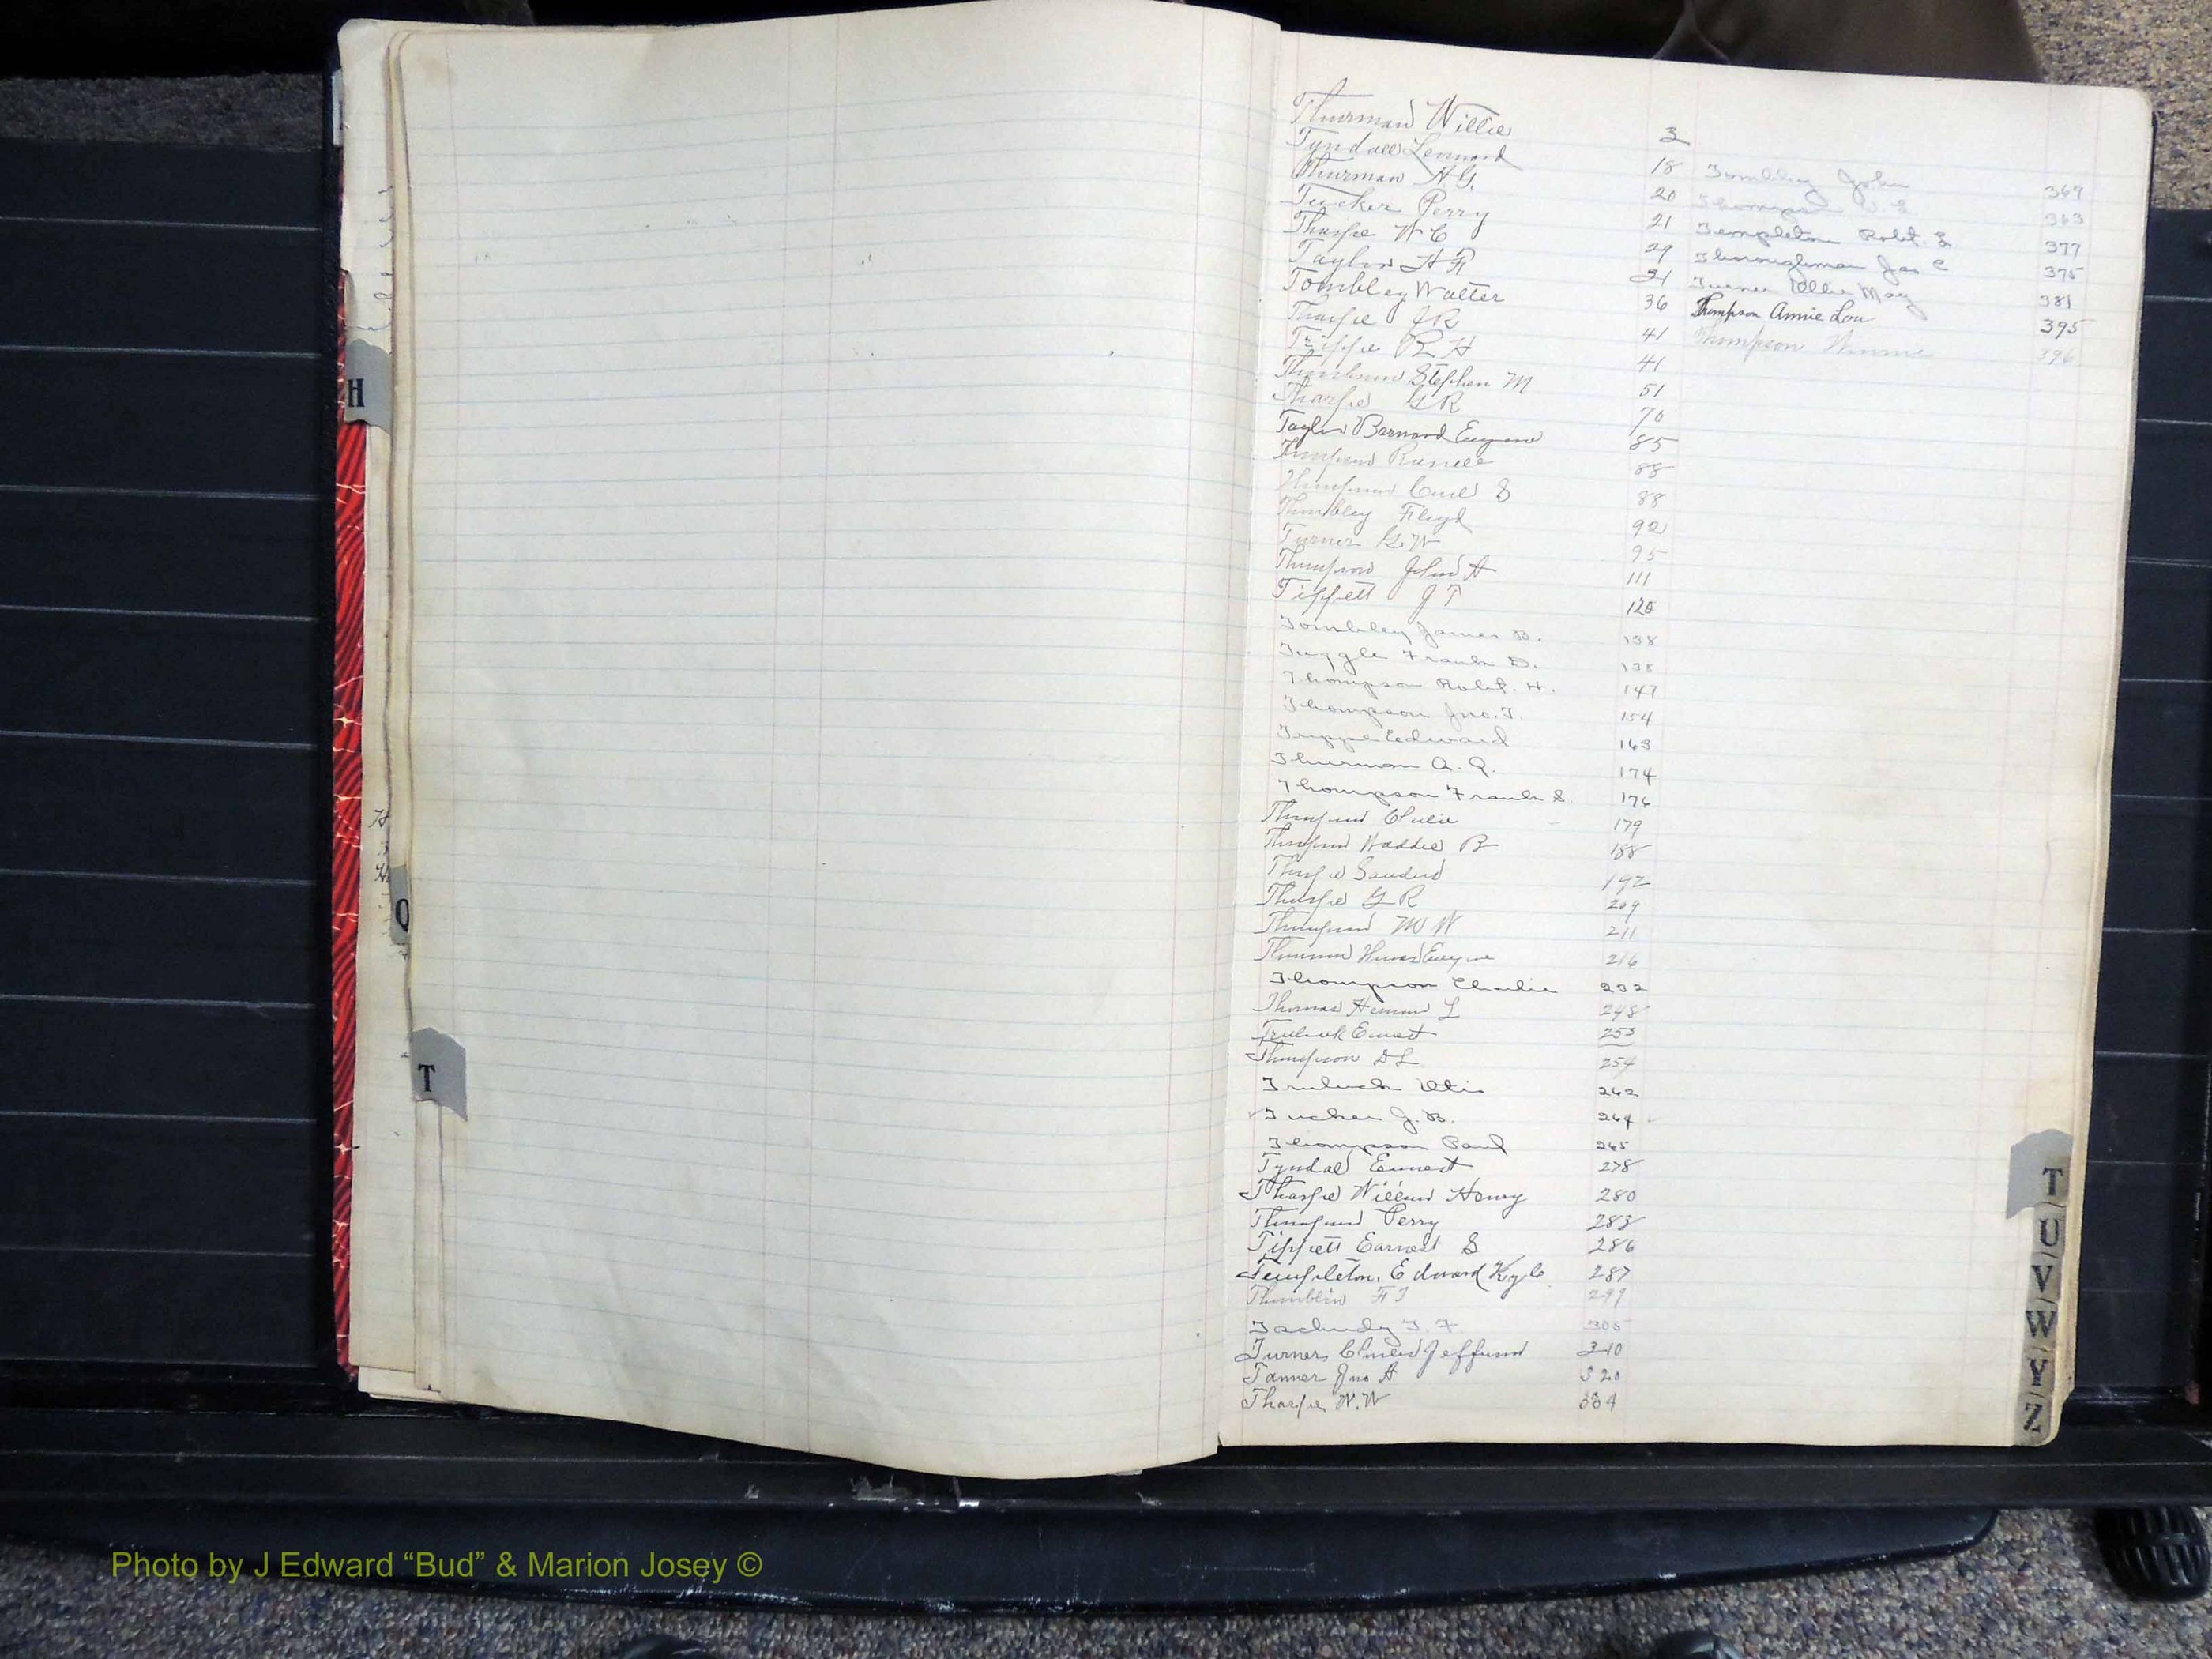 Thurman Willie 3
Tyndall Leonard 18
Thurman H. G. 20
Tucker Perry 21
Tharpe W C 29
Taylor H R 31
Tombley Walter 36
Tharpe J R 41
Trippe R H 41
Stephen M 51
Tharpe G R 70
Taylor Bernard Eugene 85
Thompson Russell 88
Thompson Carl S 88
Floyd 92
Turner G W 95
Thompson John A 111
Tippett J T 120
Tombley James B. 138
Tuggle Frank D. 138
Thompson Robt. H. 147
Thompson Jno. T. 154
Trippe Edward 163
Thurman A. Q. 174
Thompson Frank S. 176
Thompson 179
Thompson Waddie B 188
Tharpe 192
Tharpe G R 209
Thompson M W 211
Eugene 216
Thompson Charlie 232
Thomas L 248
Ernest 253
Thompson D L 254
Truluck Otis 262
Tucker J. B. 264
Thompson Paul 265
Tyndal Earnest 278
Tharpe William Henry 280
Thompson Perry 283
Tippett Earnest S 286
Templeton, Edward Kyle 287
F T 299
T. F. 305
Turner, 310
Tanner Jno A 320
Tharpe W. W 334
Tombley John 369
Thompson 363
Templeton Robt. L 377
Thoroughman Jas C 375
Turner Ollie May 381
Thompson Annie Lou 395
Thompson Minnie 396
H
O
T
T
U
V
W
Y
Z
Photo by J Edward “Bud” & Marion Josey ©